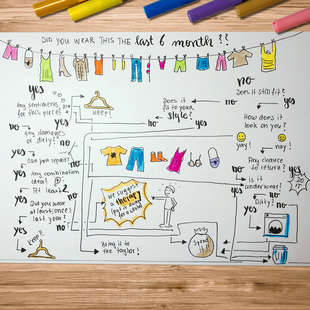 DID YOU WEAR THIS THE last 6 month??
yes
no
Any sentiments
for this piece?
yes
KEEP!
Does it
fit to your
style?
no
Does it still fit?
yes
no
no
yes
How does it
look on you?
Any damages
or dirty?
no
yes
yay!
nay!
yes
Can you repair?
no
Any chance
to return?
yes
Any combination
ideas?
At least 2
no
We suggest
a therapy
no
Is it
underwear?
yes
no
Did you wear
at least once
last year?
yes
no
Dirty?
yes
no
Keep!
Bring it to
the taylor!